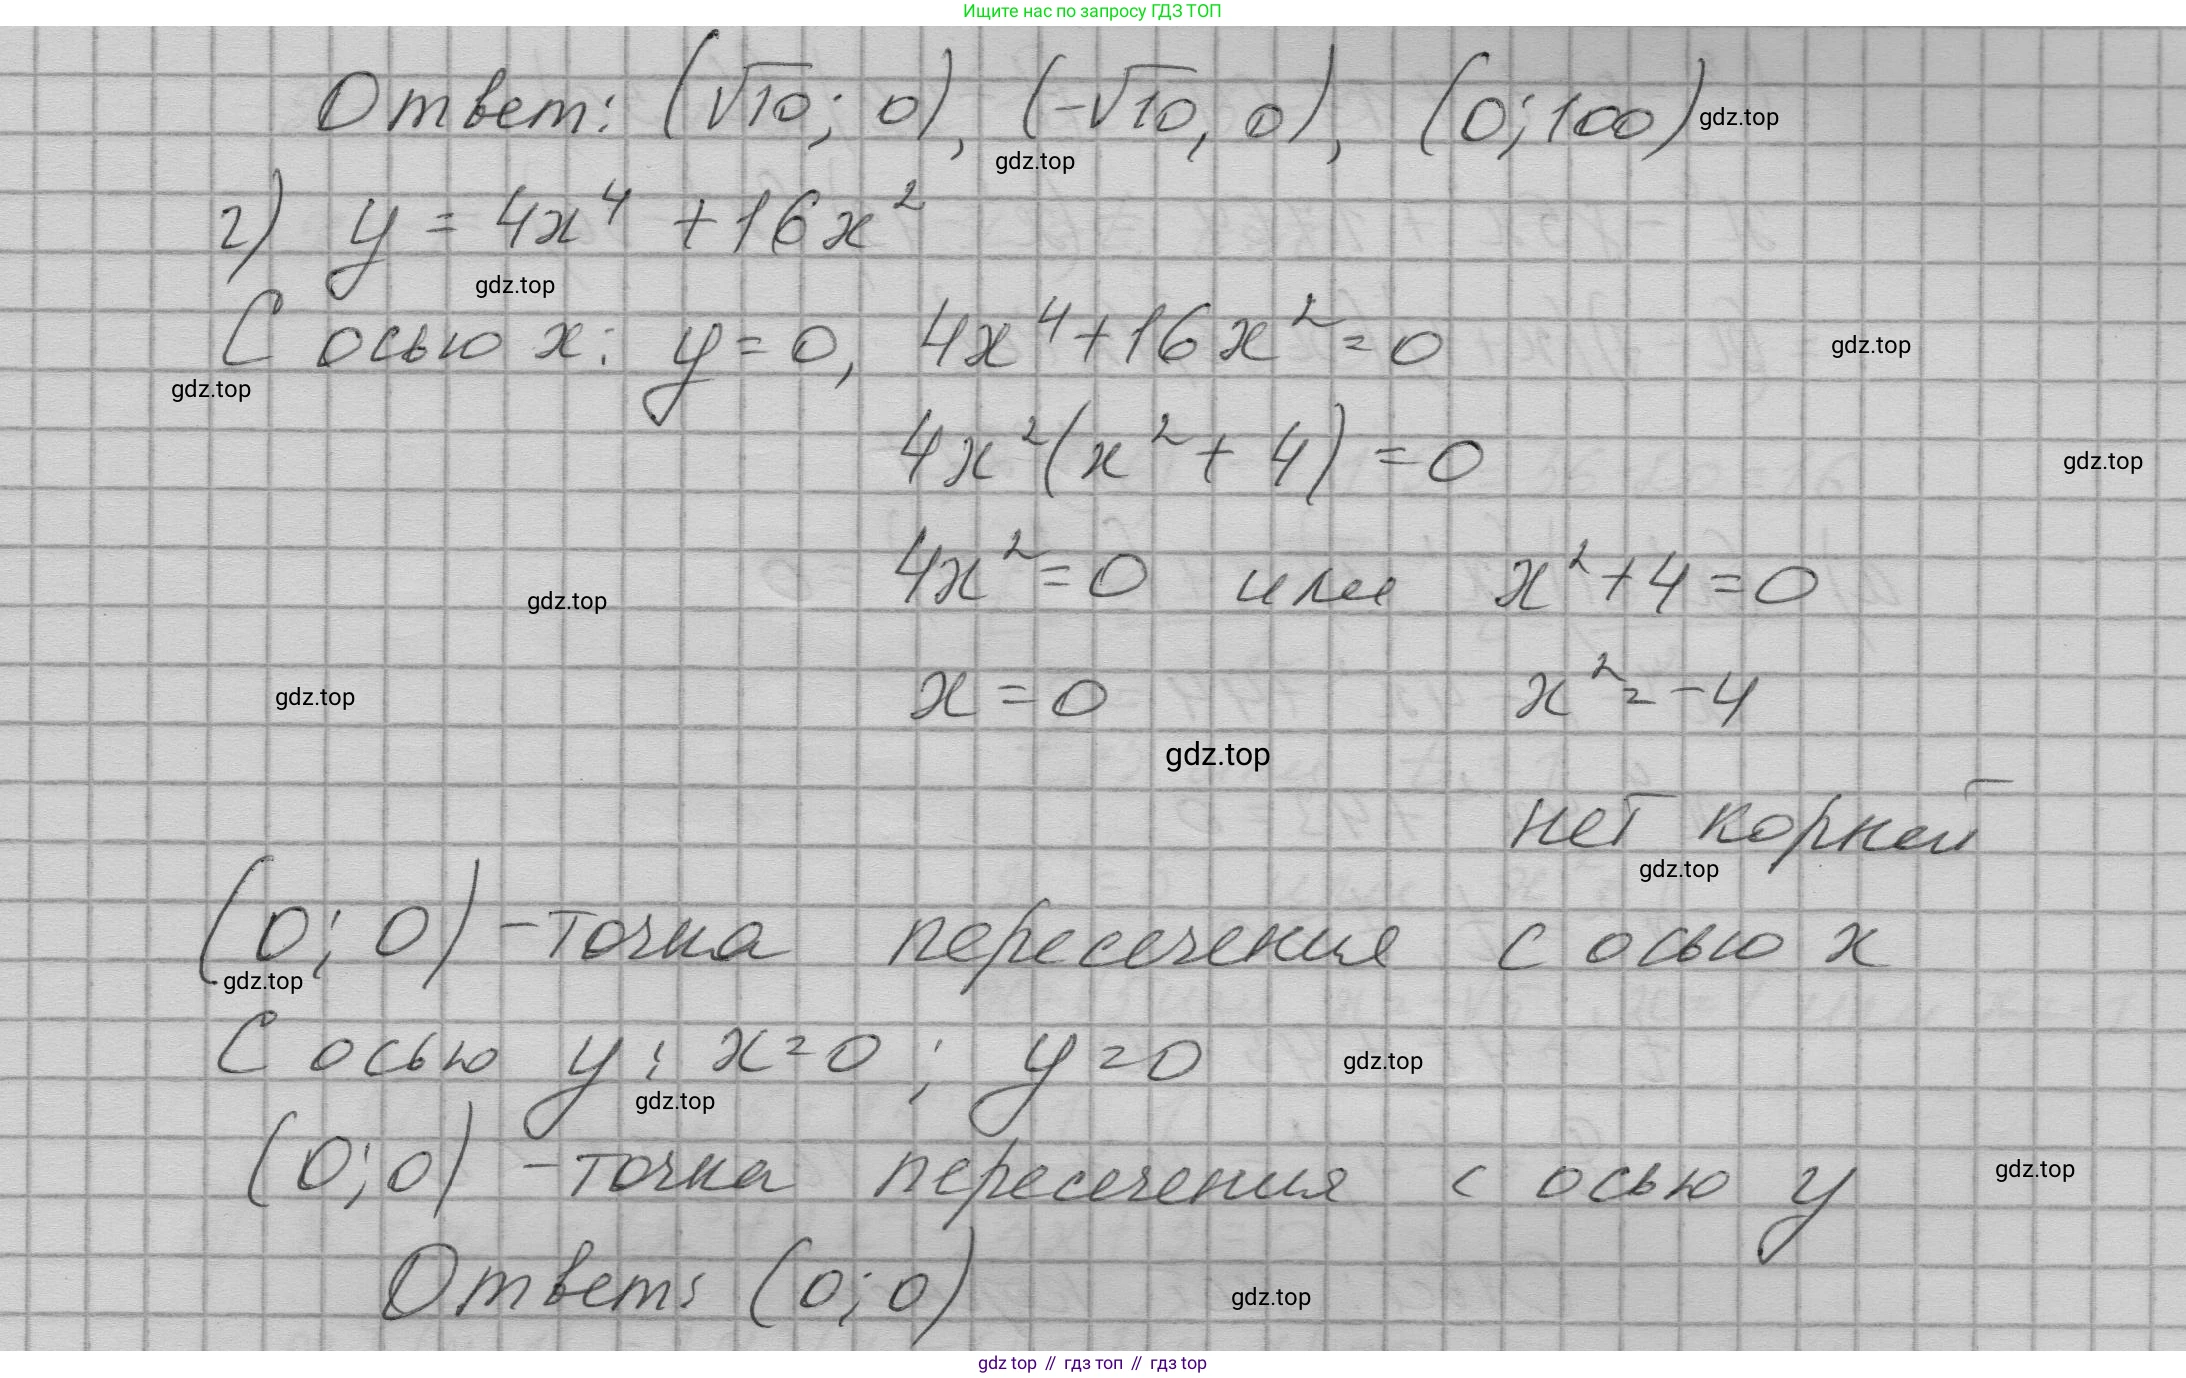 Ищите нас по запросу ГДЗ ТОП
Ответ: (√10; 0), (-√10, 0), (0; 100) gdz.top
gdz.top
г) y = 4x⁴ + 16x²
gdz.top
С осью x: y = 0, 4x⁴ + 16x² = 0 gdz.top
gdz.top
4x²(x² + 4) = 0 gdz.top
4x² = 0 или x² + 4 = 0
gdz.top
x = 0 x² = -4
gdz.top
gdz.top
нет корней
gdz.top
(0; 0) - точка пересечения с осью x
gdz.top
С осью y: x = 0; y = 0 gdz.top
gdz.top
(0; 0) - точка пересечения с осью y gdz.top
Ответ: (0; 0) gdz.top
gdz top // гдз топ // гдз top